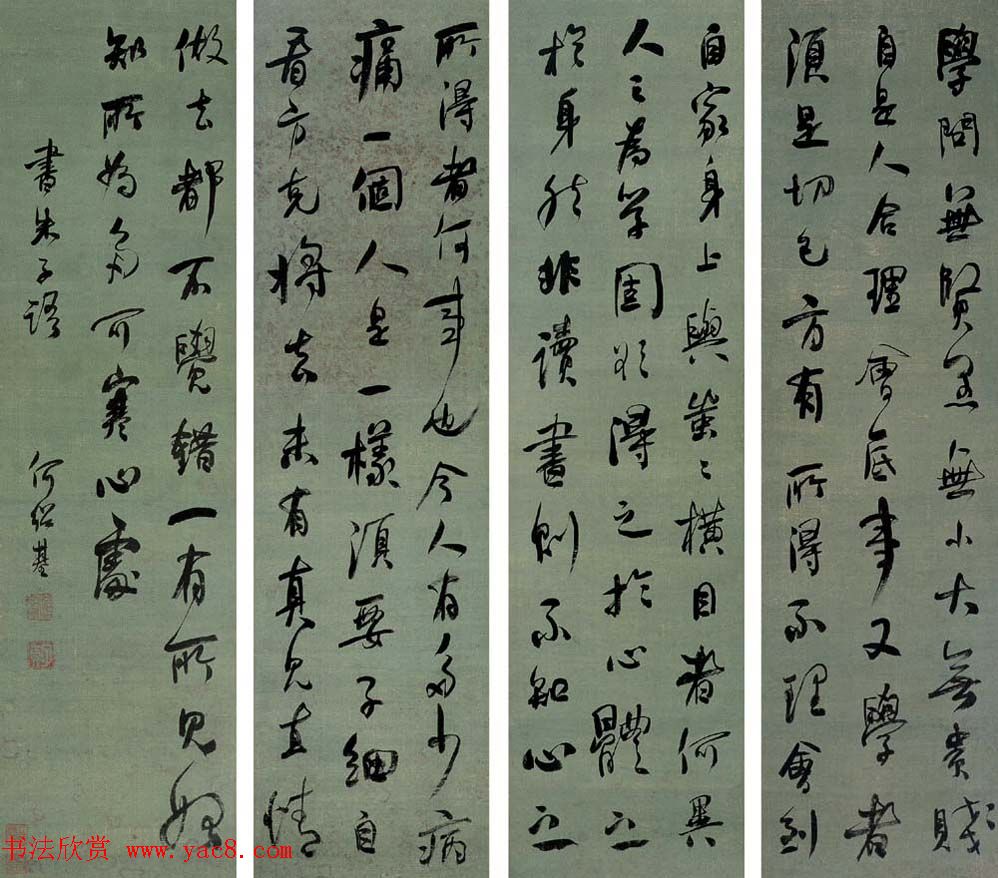 學問無賢愚無小大無貴賤
自是人合理會底事又學者
須是切己方有所得不理會到
自家身上與蚩〻橫目者何異
人之為學固欲得之於心體之
於身然非讀書則不知心之
所得者何事也今人有多少病
痛一個人是一樣須要子細自
看方克將去未有真見直情
做去都不覺錯一有所見始
知所為多有可寒心處
書朱子語
何紹基
书法欣赏 www.yac8.com